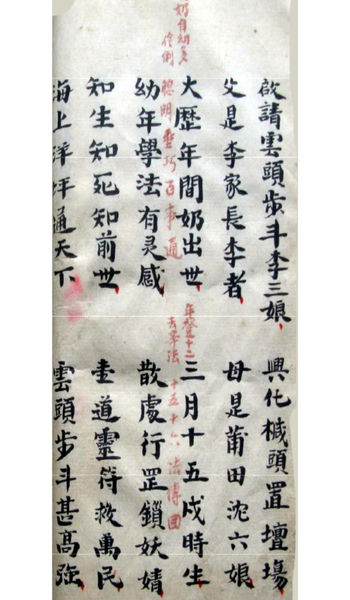 啟請雲頭步斗李三娘 興化橶頭置壇塲
父是李家長李者 母是莆田沈六娘
大歷年間奶出世 三月十五戌時生
奶自幼多伶俐 聰明乖巧百事通 年登十二去學法 十五十六法傳回
幼年學法有灵感 散處行罡鎖妖婧
知生知死知前世 道靈符救萬民
海上洋坪通天下 雲頭步斗甚高強